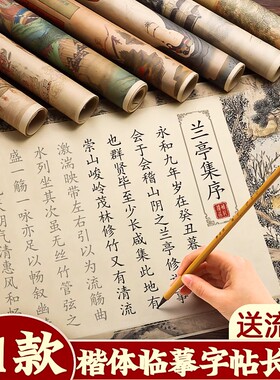 兰亭集序
永和九年岁在癸丑暮
会于会稽山阴之兰亭修
也群贤毕至少长咸集此地有
崇山峻岭茂林修竹又有清流
激湍映带左右引以为流觞曲
水列坐其次虽无丝竹管弦之
盛一觞一咏亦足以畅叙幽
气清惠风和
送流
款
楷体临摹字帖长